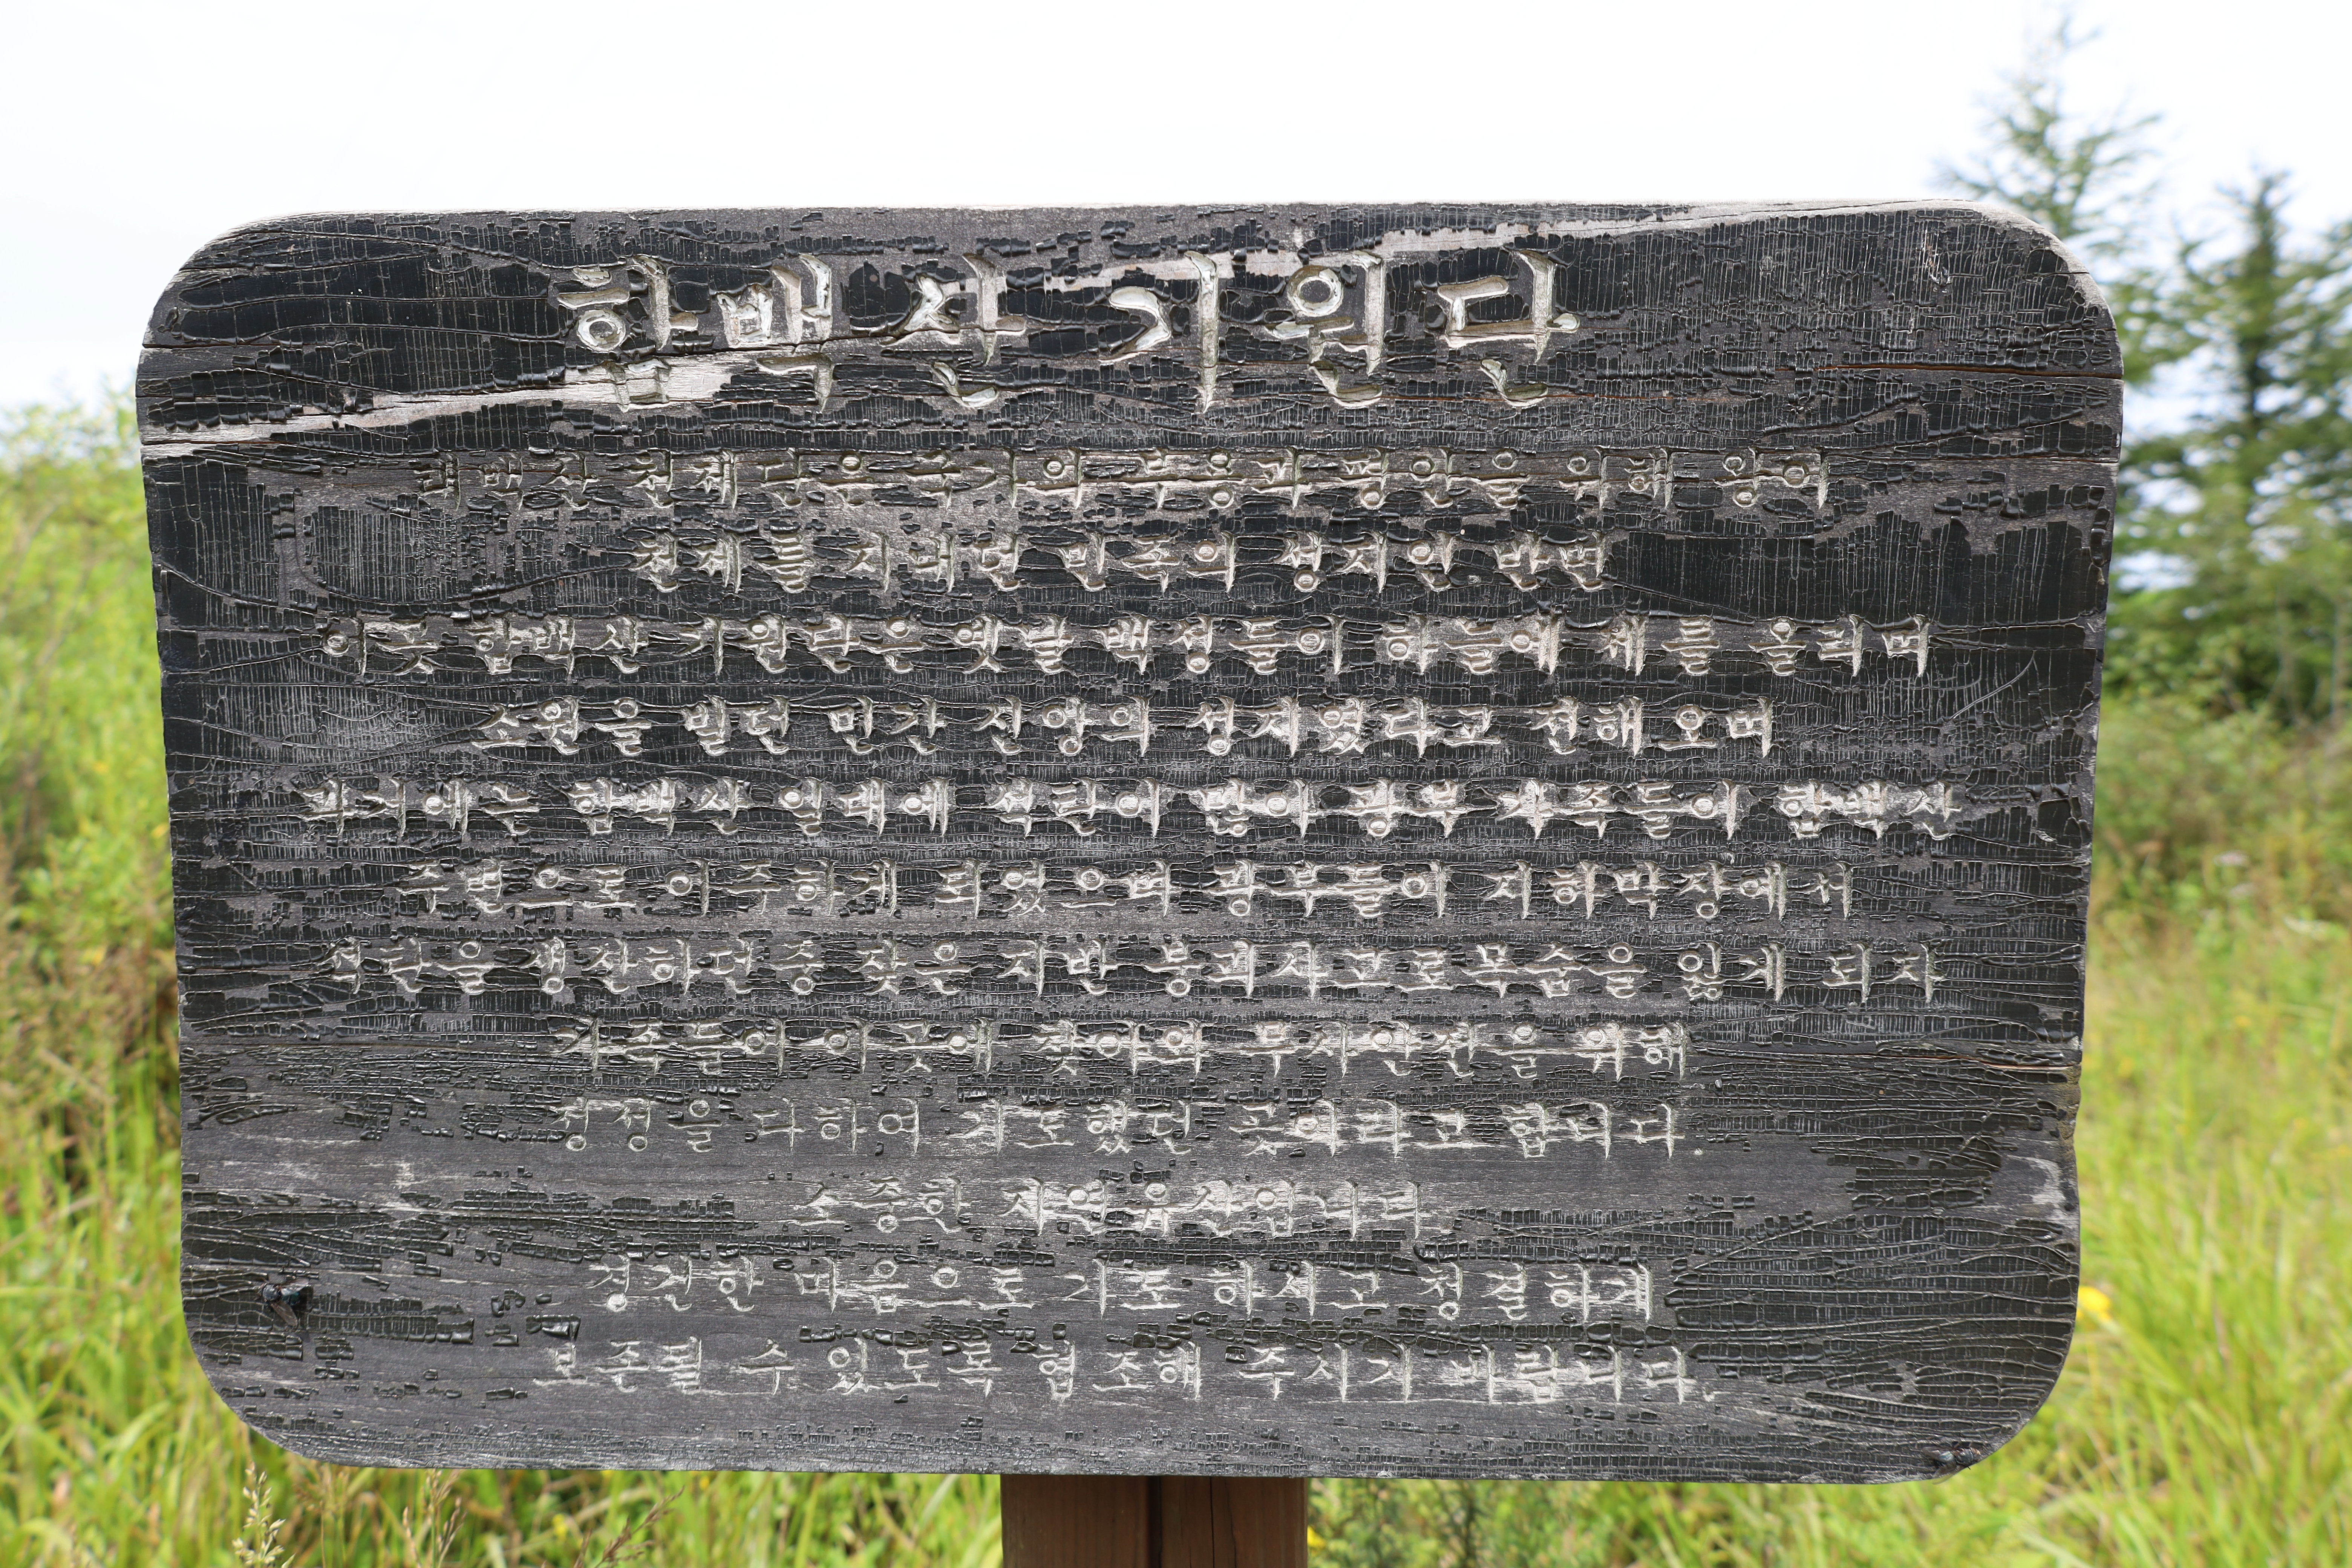 함백산 기원단
태백산 천제단은 국가의 부응과 평안을 위해 왕이
천제를 지내던 민족의 성지인 반면
이곳 함백산 기원단은 옛날 백성들이 하늘에 제를 올리며
소원을 빌던 민간 신앙의 성지였다고 전해 오며
과거에는 함백산 일대에 석탄이 많아 광부 가족들이 함백산
주변으로 이주하게 되었으며 광부들이 지하막장에서
석탄을 생산하던 중 잦은 지반 붕괴사고로 목숨을 잃게 되자
가족들이 이곳에 찾아와 무사안전을 위해
정성을 다하여 기도했던 곳이라고 합니다.
소중한 자연유산입니다.
경건한 마음으로 기도 하시고 청결하게
보존될 수 있도록 협조해 주시기 바랍니다.